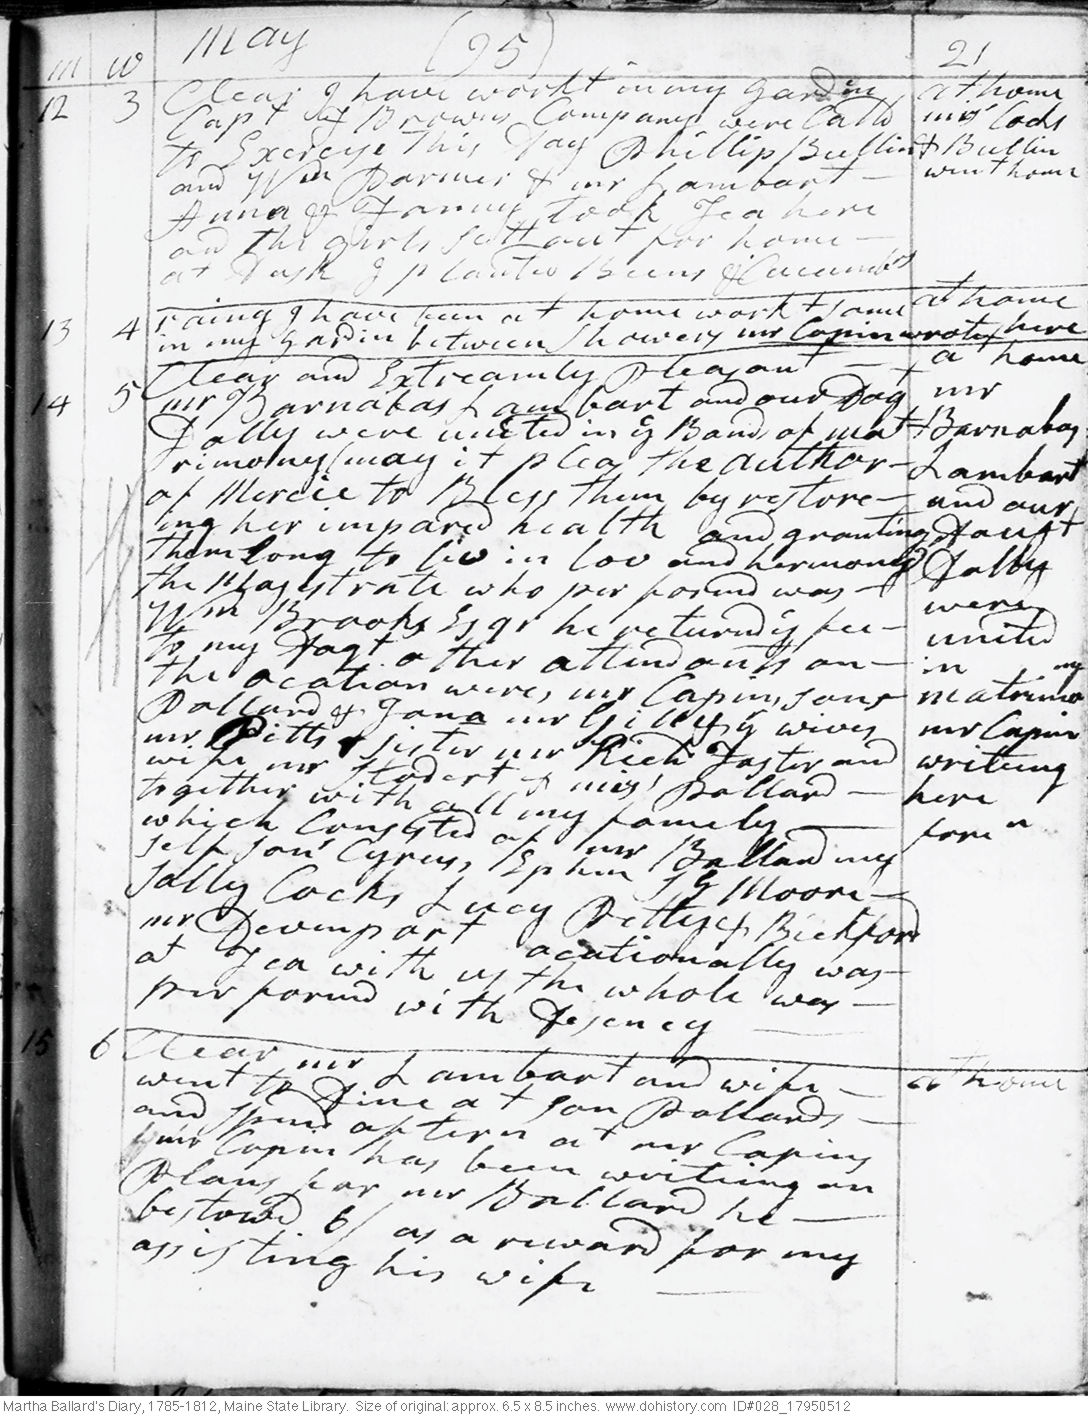 m w May (95) 21
12 3 Clear I have workt in my Gardin
Capt Browns Company were Calld
to Exercise this Day Phillip Bullin
and Wm Parmer & mr Lambart —
Anna & Fanny took Tea here
and the girls sett out for home —
at Dusk I planted Beens & Cucumbrs
at home
mrs Cocks
& Bullin
went home
13 4 raing I have been at home workt some
in my Gardin between showers mr Capin wrote here
at home
14 5 Clear and Extreamly Pleasant —
mr Barnabas Lambart and our Dag
Dolly were united in ye Bands of mat
rimony (may it pleas the author —
of Mercie to Bless them by restore —
ing her impared health and granting
them long to liv in lov and hermony)
the Majistrate who performd was —
Wm Brooks Esqr he returnd ye fee —
to my Dagt other attendants on —
the ocation were, mr Capin, sons
Pollard & Jona mr Gilley, & wives
mr Pitts & sister mr Rich Foster and
wife mr Stodert & mis Pollard —
together with all my famely —
which Consisted of mr Ballard my
self son Cyrus, Ephm J G Moore —
Sally Cocks Lucy Bettsy Bickford
mr Devenport ocationally was —
at Tea with us the whole was —
performd with Desency —
at home
mr
Barnabas
Lambart
and our
Daught
Dolly
were
united
in my
matrimo
mr Capin
writeing
here
foren
15 6 Clear mr Lambart and wife —
went to Dine at son Pollards —
and spend aftern at mr Capins
mr Capin has been writeing on
Plans for mr Ballard he —
bestowd 6/ as a reward for my
assisting his wife —
at home
Martha Ballard's Diary, 1785-1812, Maine State Library. Size of original: approx. 6.5 x 8.5 inches. www.dohistory.com ID#028_17950512